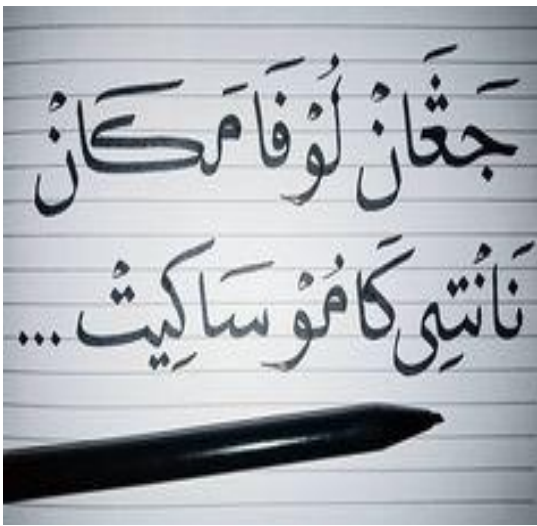 جَڠَانْ لُوْفَا مَكَانْ
نَانْتِى كَامُوْ سَاكِيتْ ...